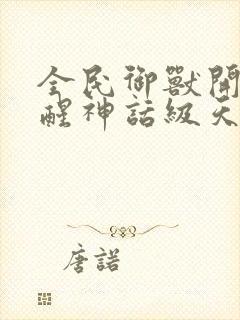 全民御獸開
醒神話級天
唐諾